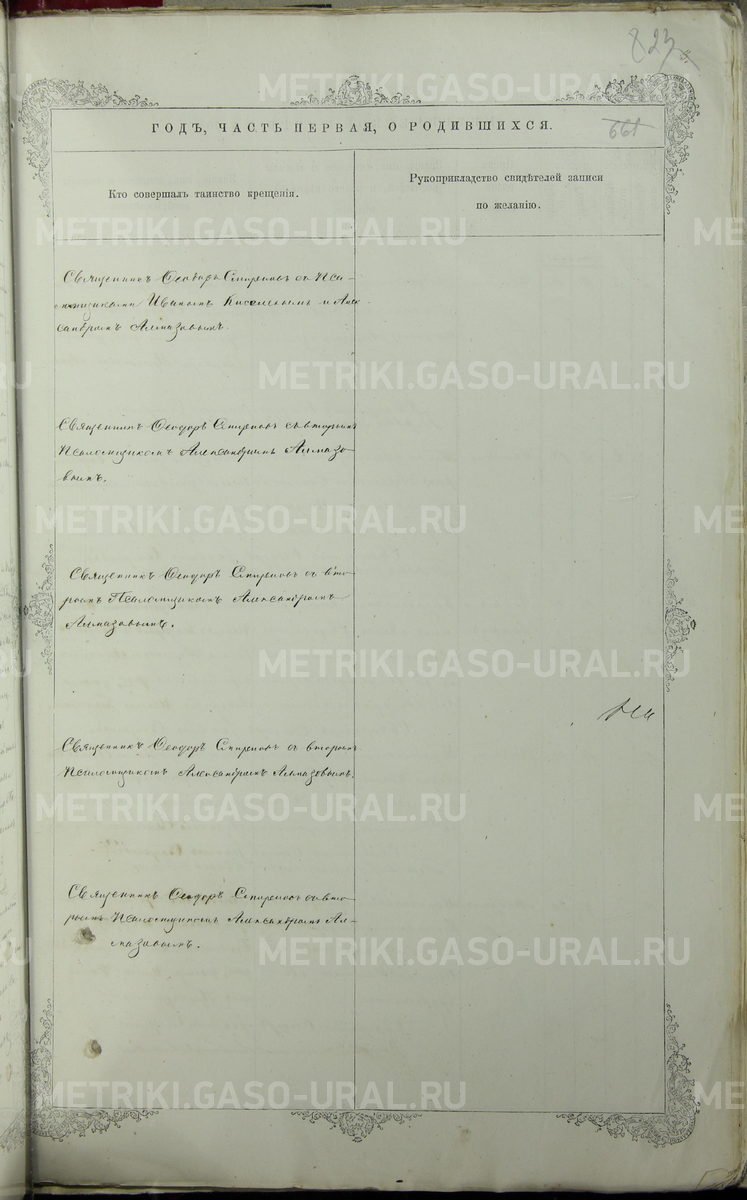 823
METRIKI.GASO-URAL.RU
ГОДЪ, ЧАСТЬ ПЕРВАЯ, О РОДИВШИХСЯ.
661
Кто совершалъ таинство крещенія.
Рукоприкладство свидѣтелей записи
по желанію.
Священникъ Ѳеодоръ Спиринъ съ Пса-
ломщиками Иваномъ Киселевымъ и Алек
сандромъ Алмазовымъ.
Священникъ Ѳеодоръ Спиринъ съ вторымъ
Псаломщикомъ Александромъ Алмазо-
вымъ.
Священникъ Ѳеодоръ Спиринъ съ вто-
рымъ Псаломщикомъ Александромъ
Алмазовымъ.
Священникъ Ѳеодоръ Спиринъ съ вторымъ
Псаломщикомъ Александромъ Алмазовымъ.
Священникъ Ѳеодоръ Спиринъ съ вто-
рымъ Псаломщикомъ Александромъ Ал-
мазовымъ.